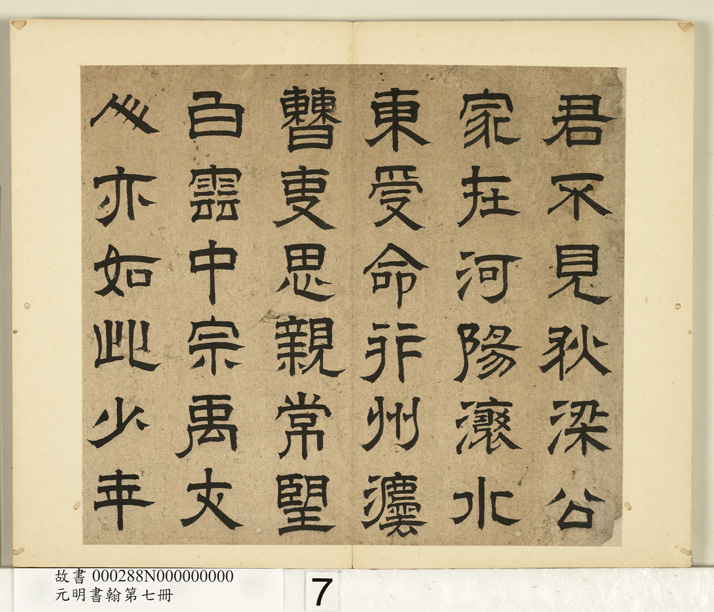 君不見狄梁公
家在河陽水
東受命并州灋
曹吏思親常望
白雲中宗禹丈
人亦如此少年
故書 000288N000000000
元明書翰第七冊
7